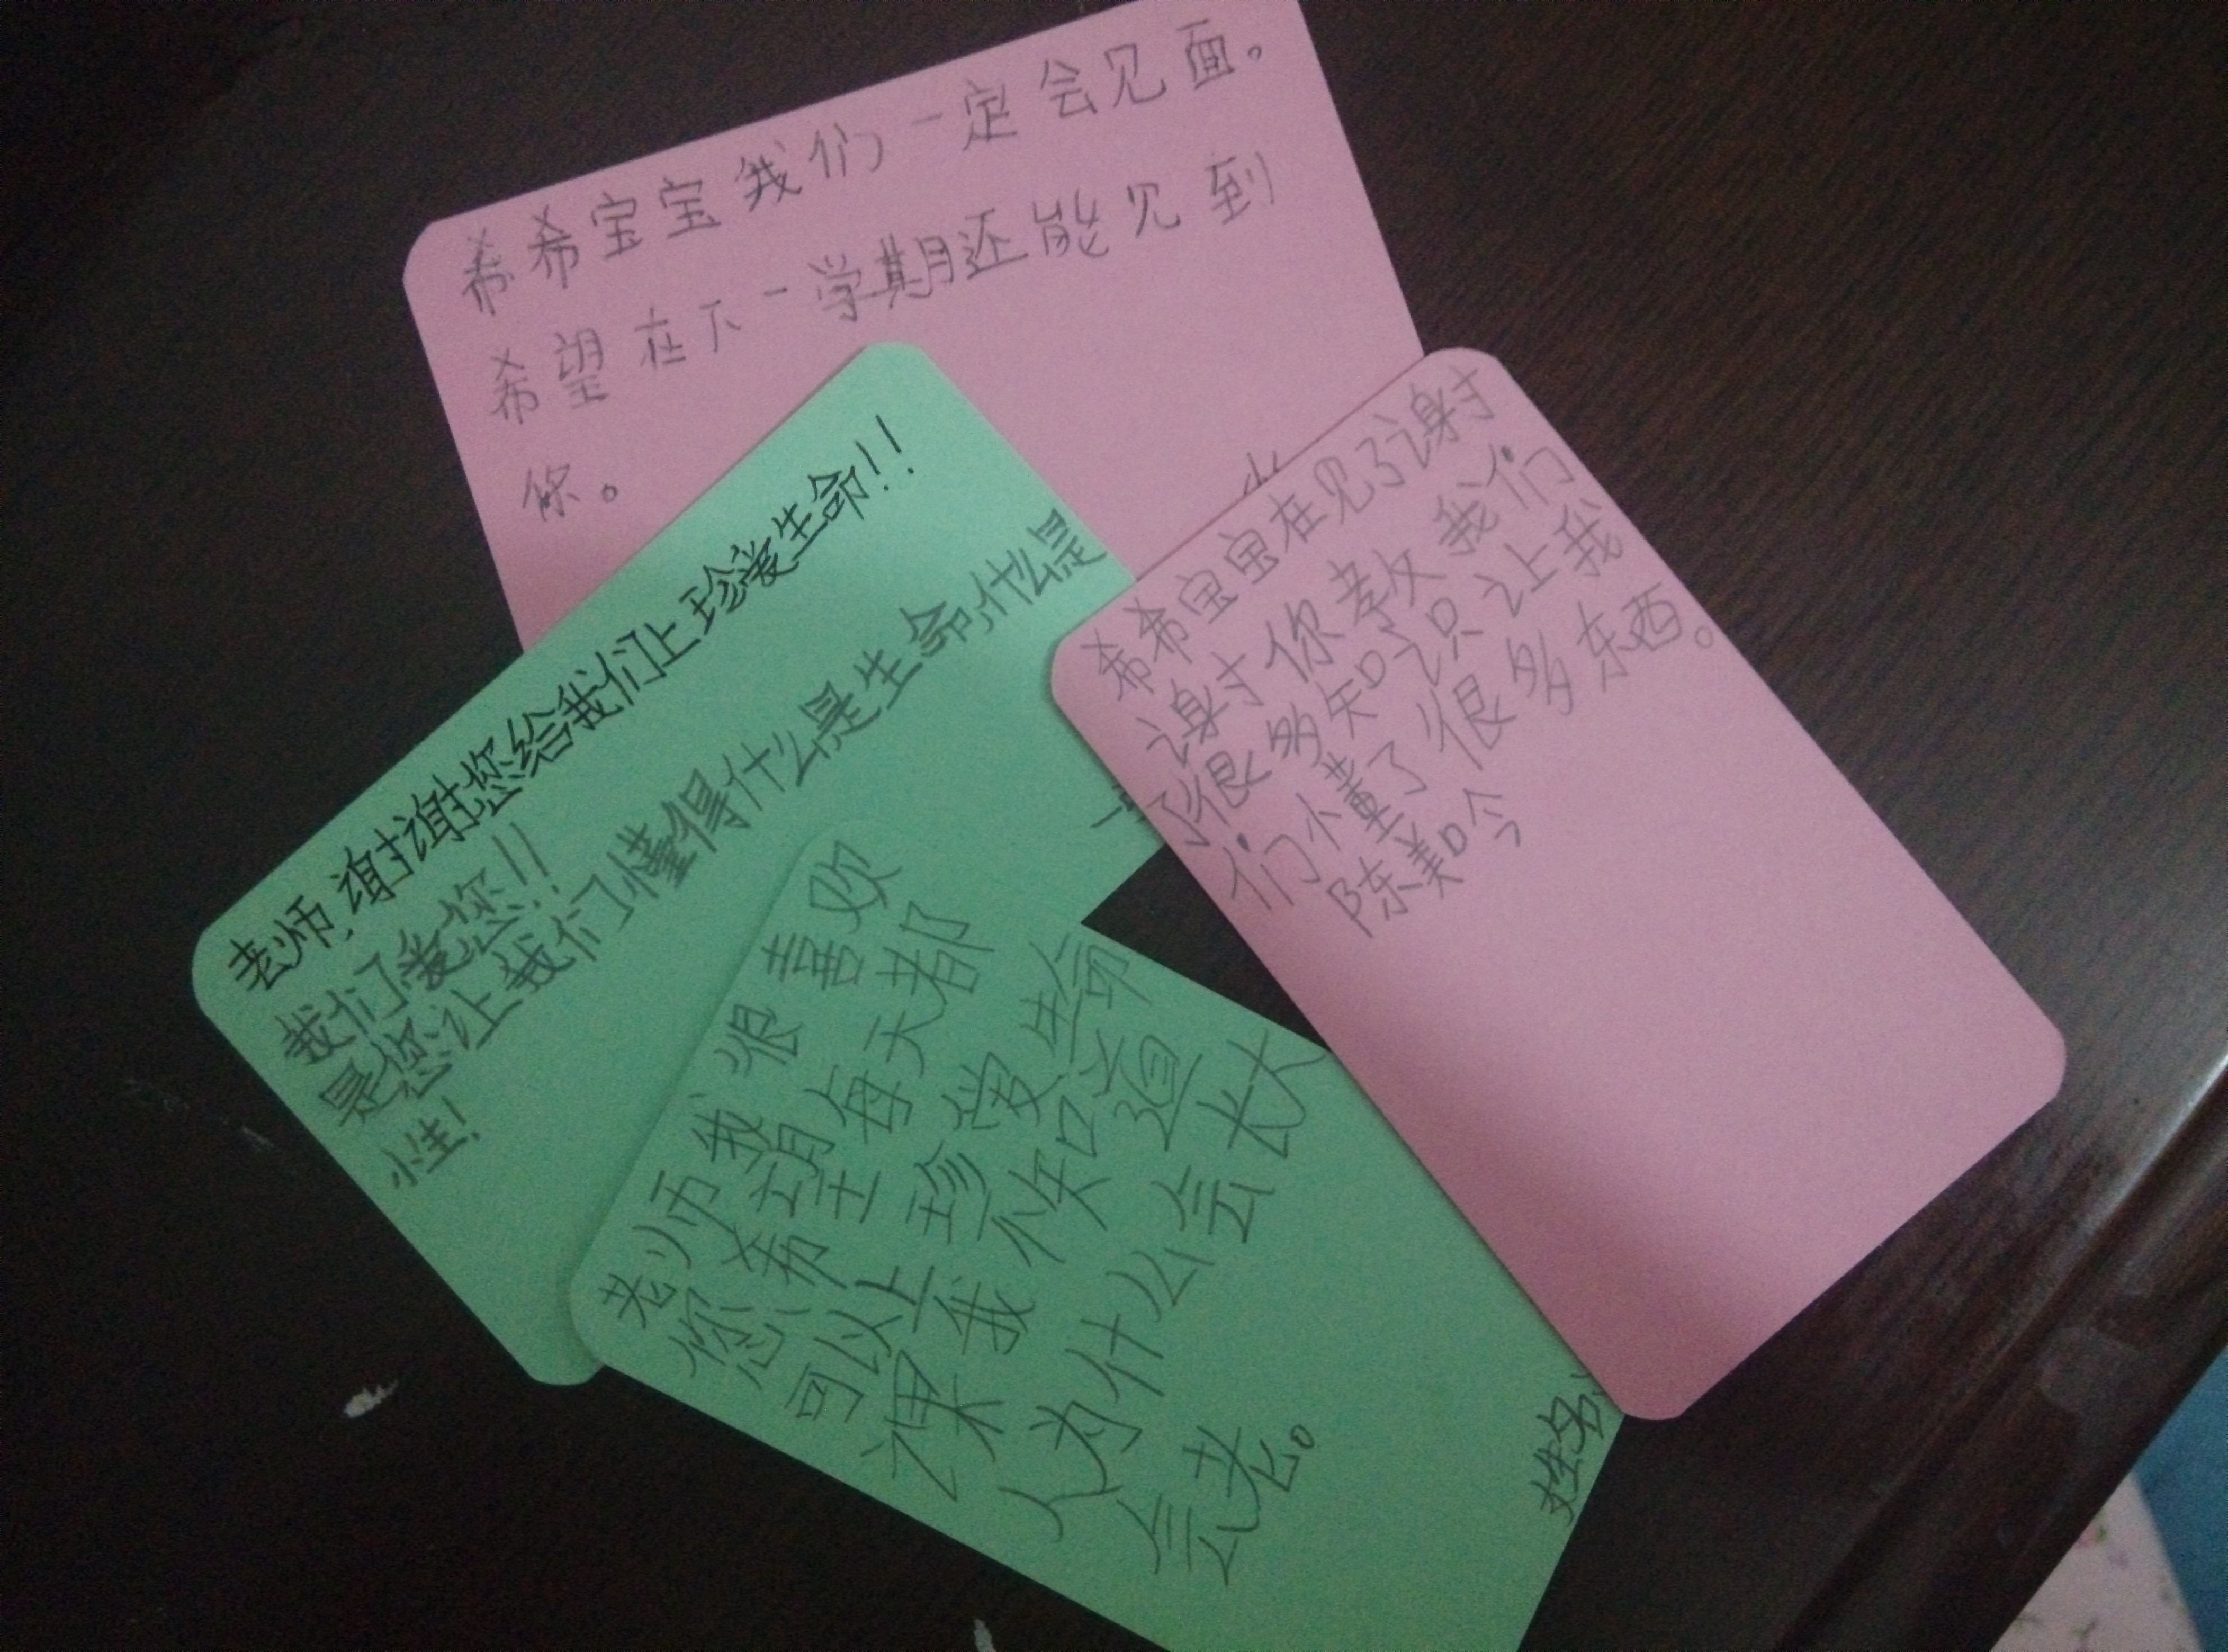 希希宝宝我们一定会见面。
希望在下一学期还能见到
你。
老师,谢谢您给我们上珍爱生命!!
我们爱您!!
是您让我们懂得什么是生命,什么是
性!
希希宝宝在见了谢
谢你教我们
了很多知识让我
们懂了很多东西。
老师我很喜欢
您希望每天都
可以上珍爱生命
课我
人为什么会长大
会老。
姓名